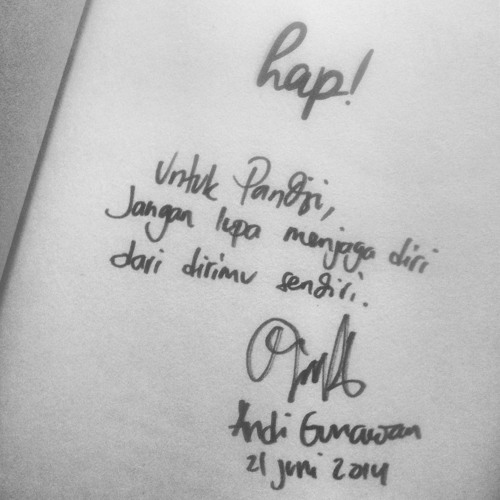 hap!
Untuk Pandji,
Jangan lupa menjaga diri
dari dirimu sendiri.
Andi Gunawan
21 juni 2014